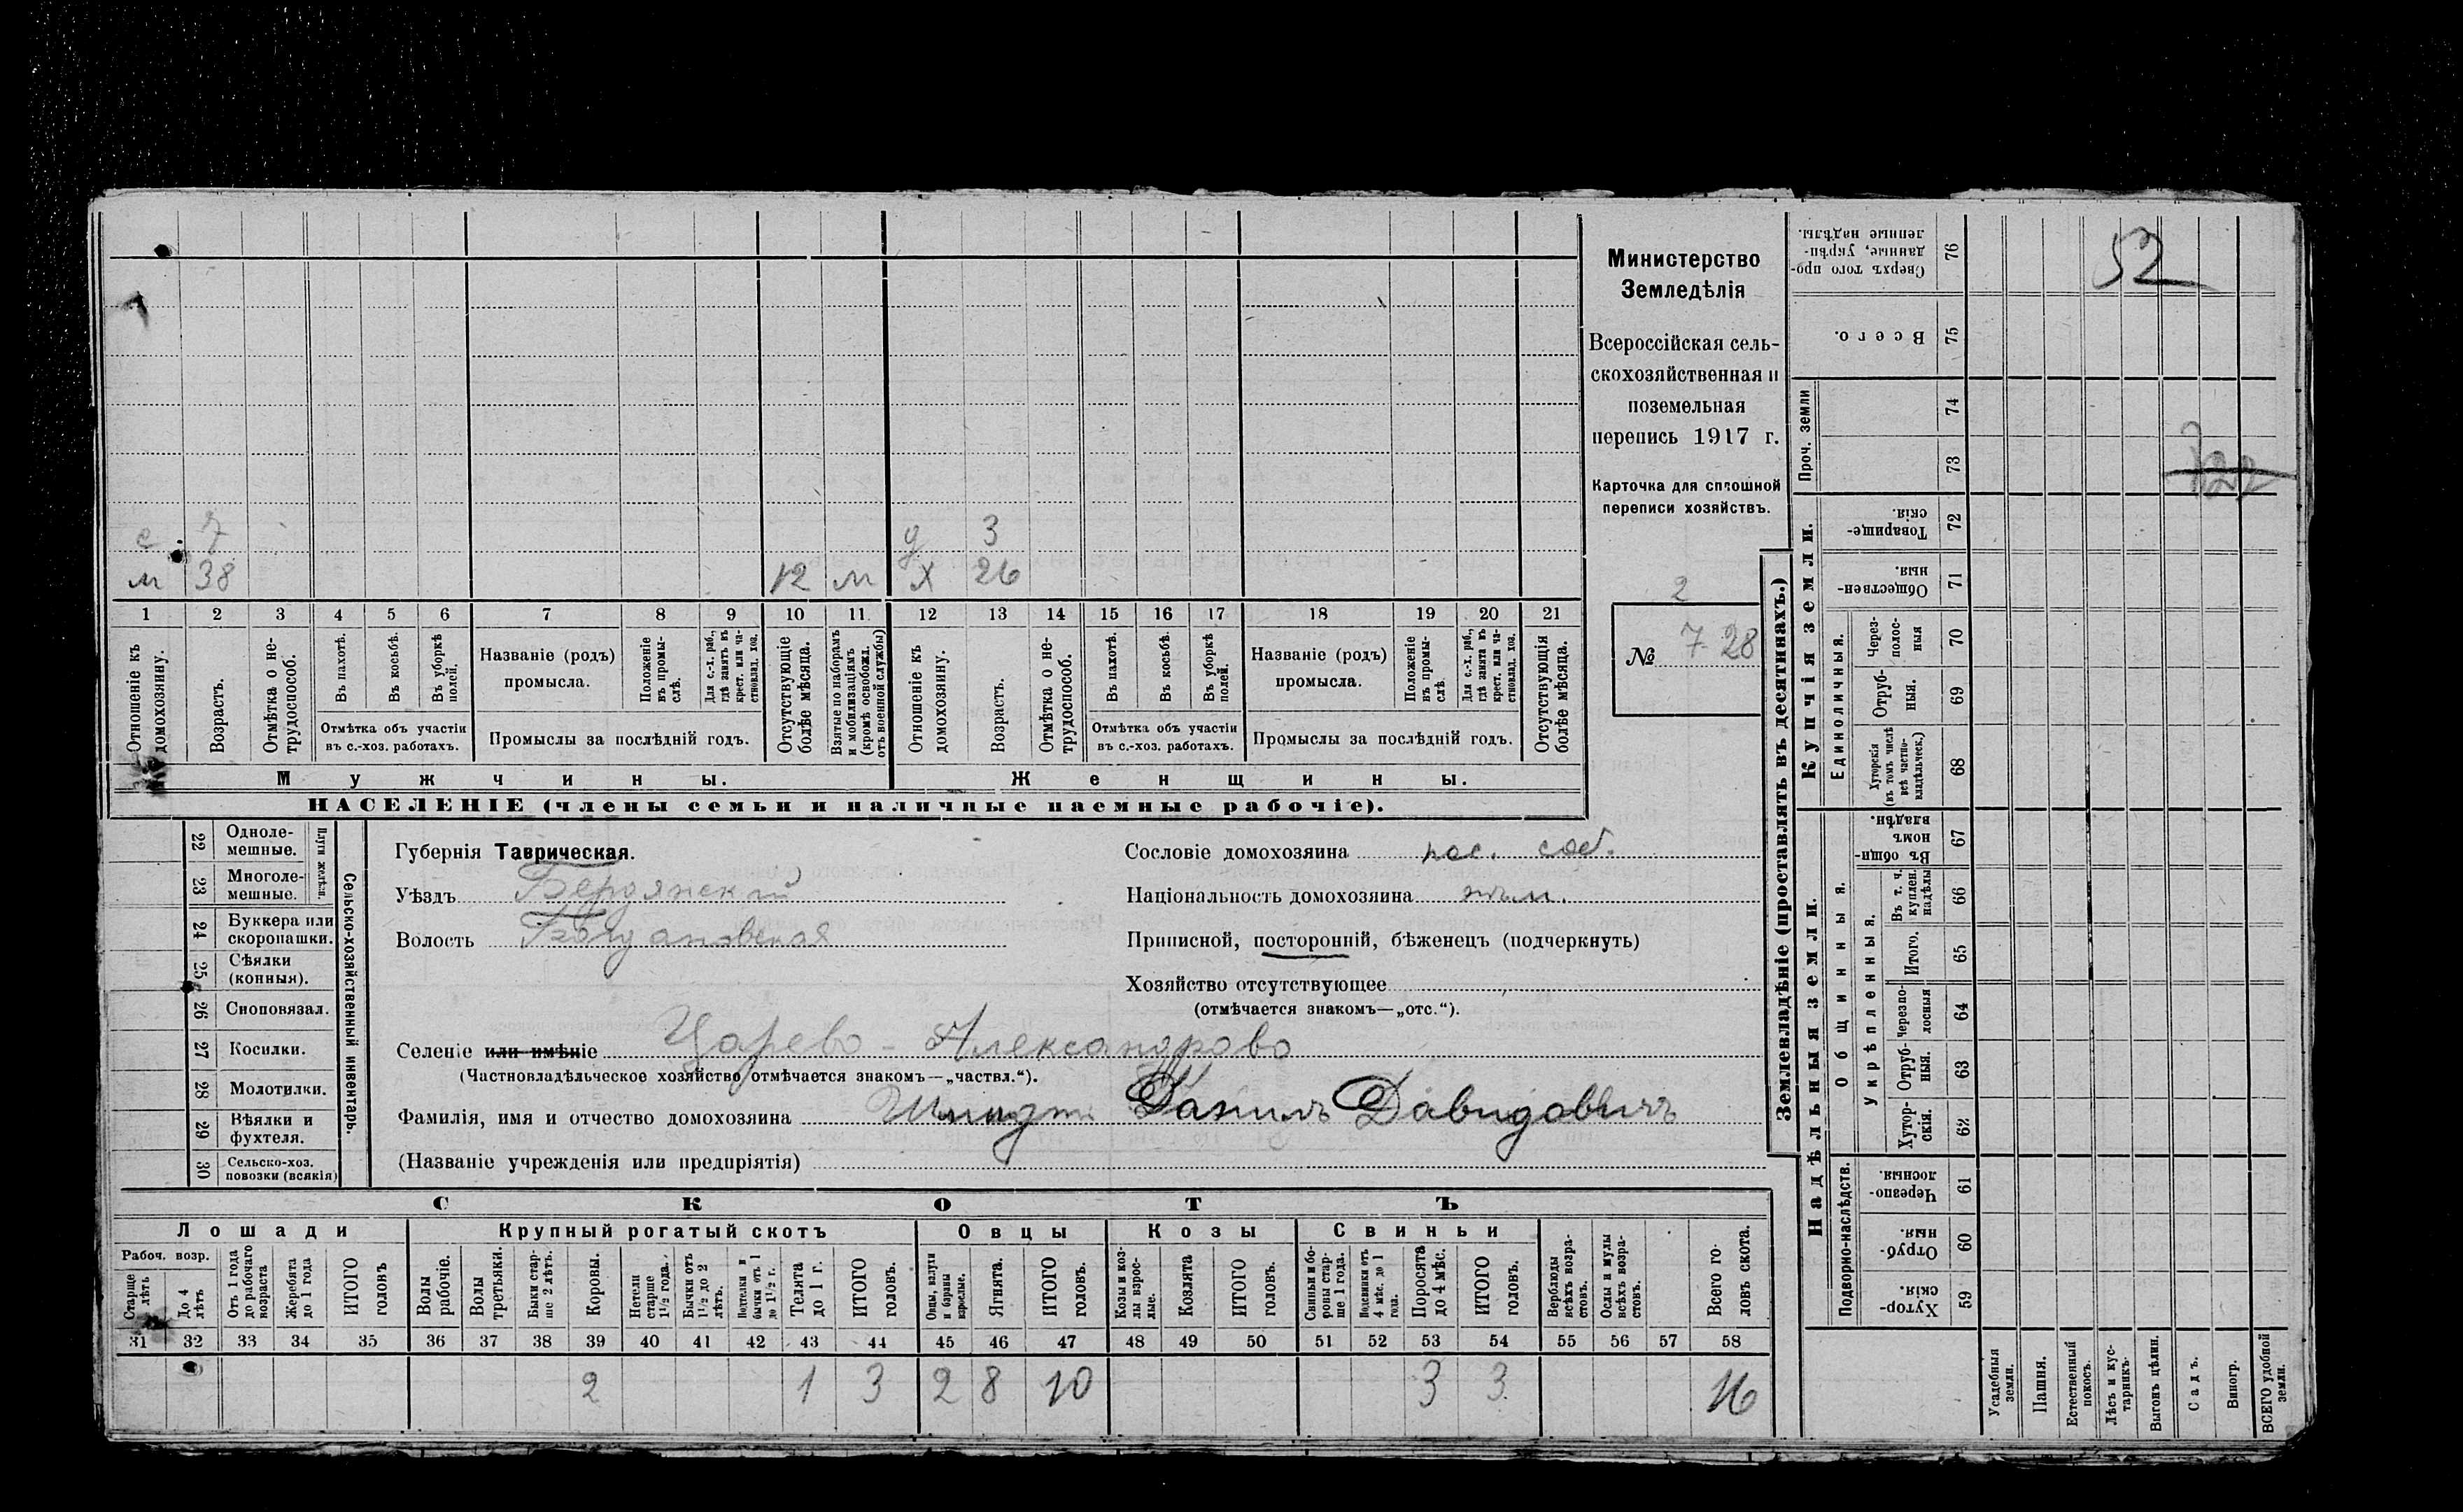 с 7 д 3
м 38 12 м х 26
1 2 3 4 5 6 7 8 9 10 11 12 13 14 15 16 17 18 19 20 21
Отношеніе къ домохозяину.
Возрастъ.
Отмѣтка о нетрудоспособ.
Въ пахотѣ.
Въ косьбѣ.
Въ уборкѣ полей.
Отмѣтка объ участіи
въ с.-хоз. работахъ.
Названіе (родъ)
промысла.
Положеніе въ промыслѣ.
Для с.-х. раб., гдѣ занятъ въ крест. или частновлад. хоз.
Промыслы за послѣдній годъ.
Отсутствующіе болѣе мѣсяца.
Взятые по наборамъ и мобилизаціямъ (кромѣ освобожд. отъ военной службы)
Отношеніе къ домохозяину.
Возрастъ.
Отмѣтка о нетрудоспособ.
Въ пахотѣ.
Въ косьбѣ.
Въ уборкѣ полей.
Отмѣтка объ участіи
въ с.-хоз. работахъ.
Названіе (родъ)
промысла.
Положеніе въ промыслѣ.
Для с.-х. раб., гдѣ занята въ крест. или частновлад. хоз.
Промыслы за послѣдній годъ.
Отсутствующія болѣе мѣсяца.
Мужчины. Женщины.
НАСЕЛЕНІЕ (члены семьи и наличные наемные рабочіе).
Министерство
Земледѣлія
Всероссійская сель-
скохозяйственная и
поземельная
перепись 1917 г.
Карточка для сплошной
переписи хозяйствъ.
2
№ 7 28
Сельско-хозяйственный инвентарь.
Плуги желѣзн.
22 Одноле-
мешные.
23 Многоле-
мешные.
24 Буккера или
скоропашки.
25 Сѣялки
(конныя).
26 Сноповязал.
27 Косилки.
28 Молотилки.
29 Вѣялки и
фухтеля.
30 Сельско-хоз.
повозки (всякія)
Губернія Таврическая.
Уѣздъ Бердянскій
Волость Богдановская
Сословіе домохозяина пос. соб.
Національность домохозяина нѣм.
Приписной, посторонній, бѣженецъ (подчеркнуть)
Хозяйство отсутствующее
(отмѣчается знакомъ—„отс.“).
Селеніе или имѣніе Царево-Александрово
(Частновладѣльческое хозяйство отмѣчается знакомъ—„частвл.“).
Фамилія, имя и отчество домохозяина Шмидт Данилъ Давидовичъ
(Названіе учрежденія или предпріятія)
СКОТЪ
Лошади Крупный рогатый скотъ Овцы Козы Свиньи
Рабоч. возр.
Старше лѣтъ
До 4 лѣтъ
Отъ 1 года до рабочаго возраста
Жеребята до 1 года
ИТОГО головъ
Волы рабочіе.
Волы третьяки.
Быки старше 2 лѣтъ.
Коровы.
Нетели старше 1½ года.
Бычки отъ 1½ до 2 лѣтъ.
Подтелки и бычки отъ 1 до 1½ г.
Телята до 1 г.
ИТОГО головъ.
Овцы, валухи и бараны взрослые.
Ягнята.
ИТОГО головъ.
Козы и козлы взрослые.
Козлята
ИТОГО головъ.
Свиньи и боровы старше 1 года.
Подсвинки отъ 4 мѣс. до 1 года.
Поросята до 4 мѣс.
ИТОГО головъ.
Верблюды всѣхъ возрастовъ.
Ослы и мулы всѣхъ возрастовъ.
Всего головъ скота.
31 32 33 34 35 36 37 38 39 40 41 42 43 44 45 46 47 48 49 50 51 52 53 54 55 56 57 58
2 1 3 2 8 10 3 3 16
Землевладѣніе (проставлять въ десятинахъ.)
Надѣльныя земли. Купчія земли. Проч. земли
Подворно-наслѣдств. Общинныя. Единоличныя.
Укрѣпленныя.
Сверхъ того проданные, укрѣпленные надѣлы. 76
Всего. 75
74
73
Товарищескія. 72
Общественныя. 71
Черезполосныя 70
Отрубныя. 69
Хуторскія (въ томъ числѣ всѣ частновладѣльческ.) 68
Въ общинномъ владѣн. 67
Въ т. ч. куплен. надѣлы 66
Итого. 65
Черезполосныя 64
Отрубныя. 63
Хуторскія. 62
Черезполосныя. 61
Отрубныя. 60
Хуторскія. 59
Усадебныя земли.
Пашня.
Естественный покосъ.
Лѣсъ и кустарникъ.
Выгонъ цѣлин.
Садъ.
Виногр.
ВСЕГО удобной земли.
52